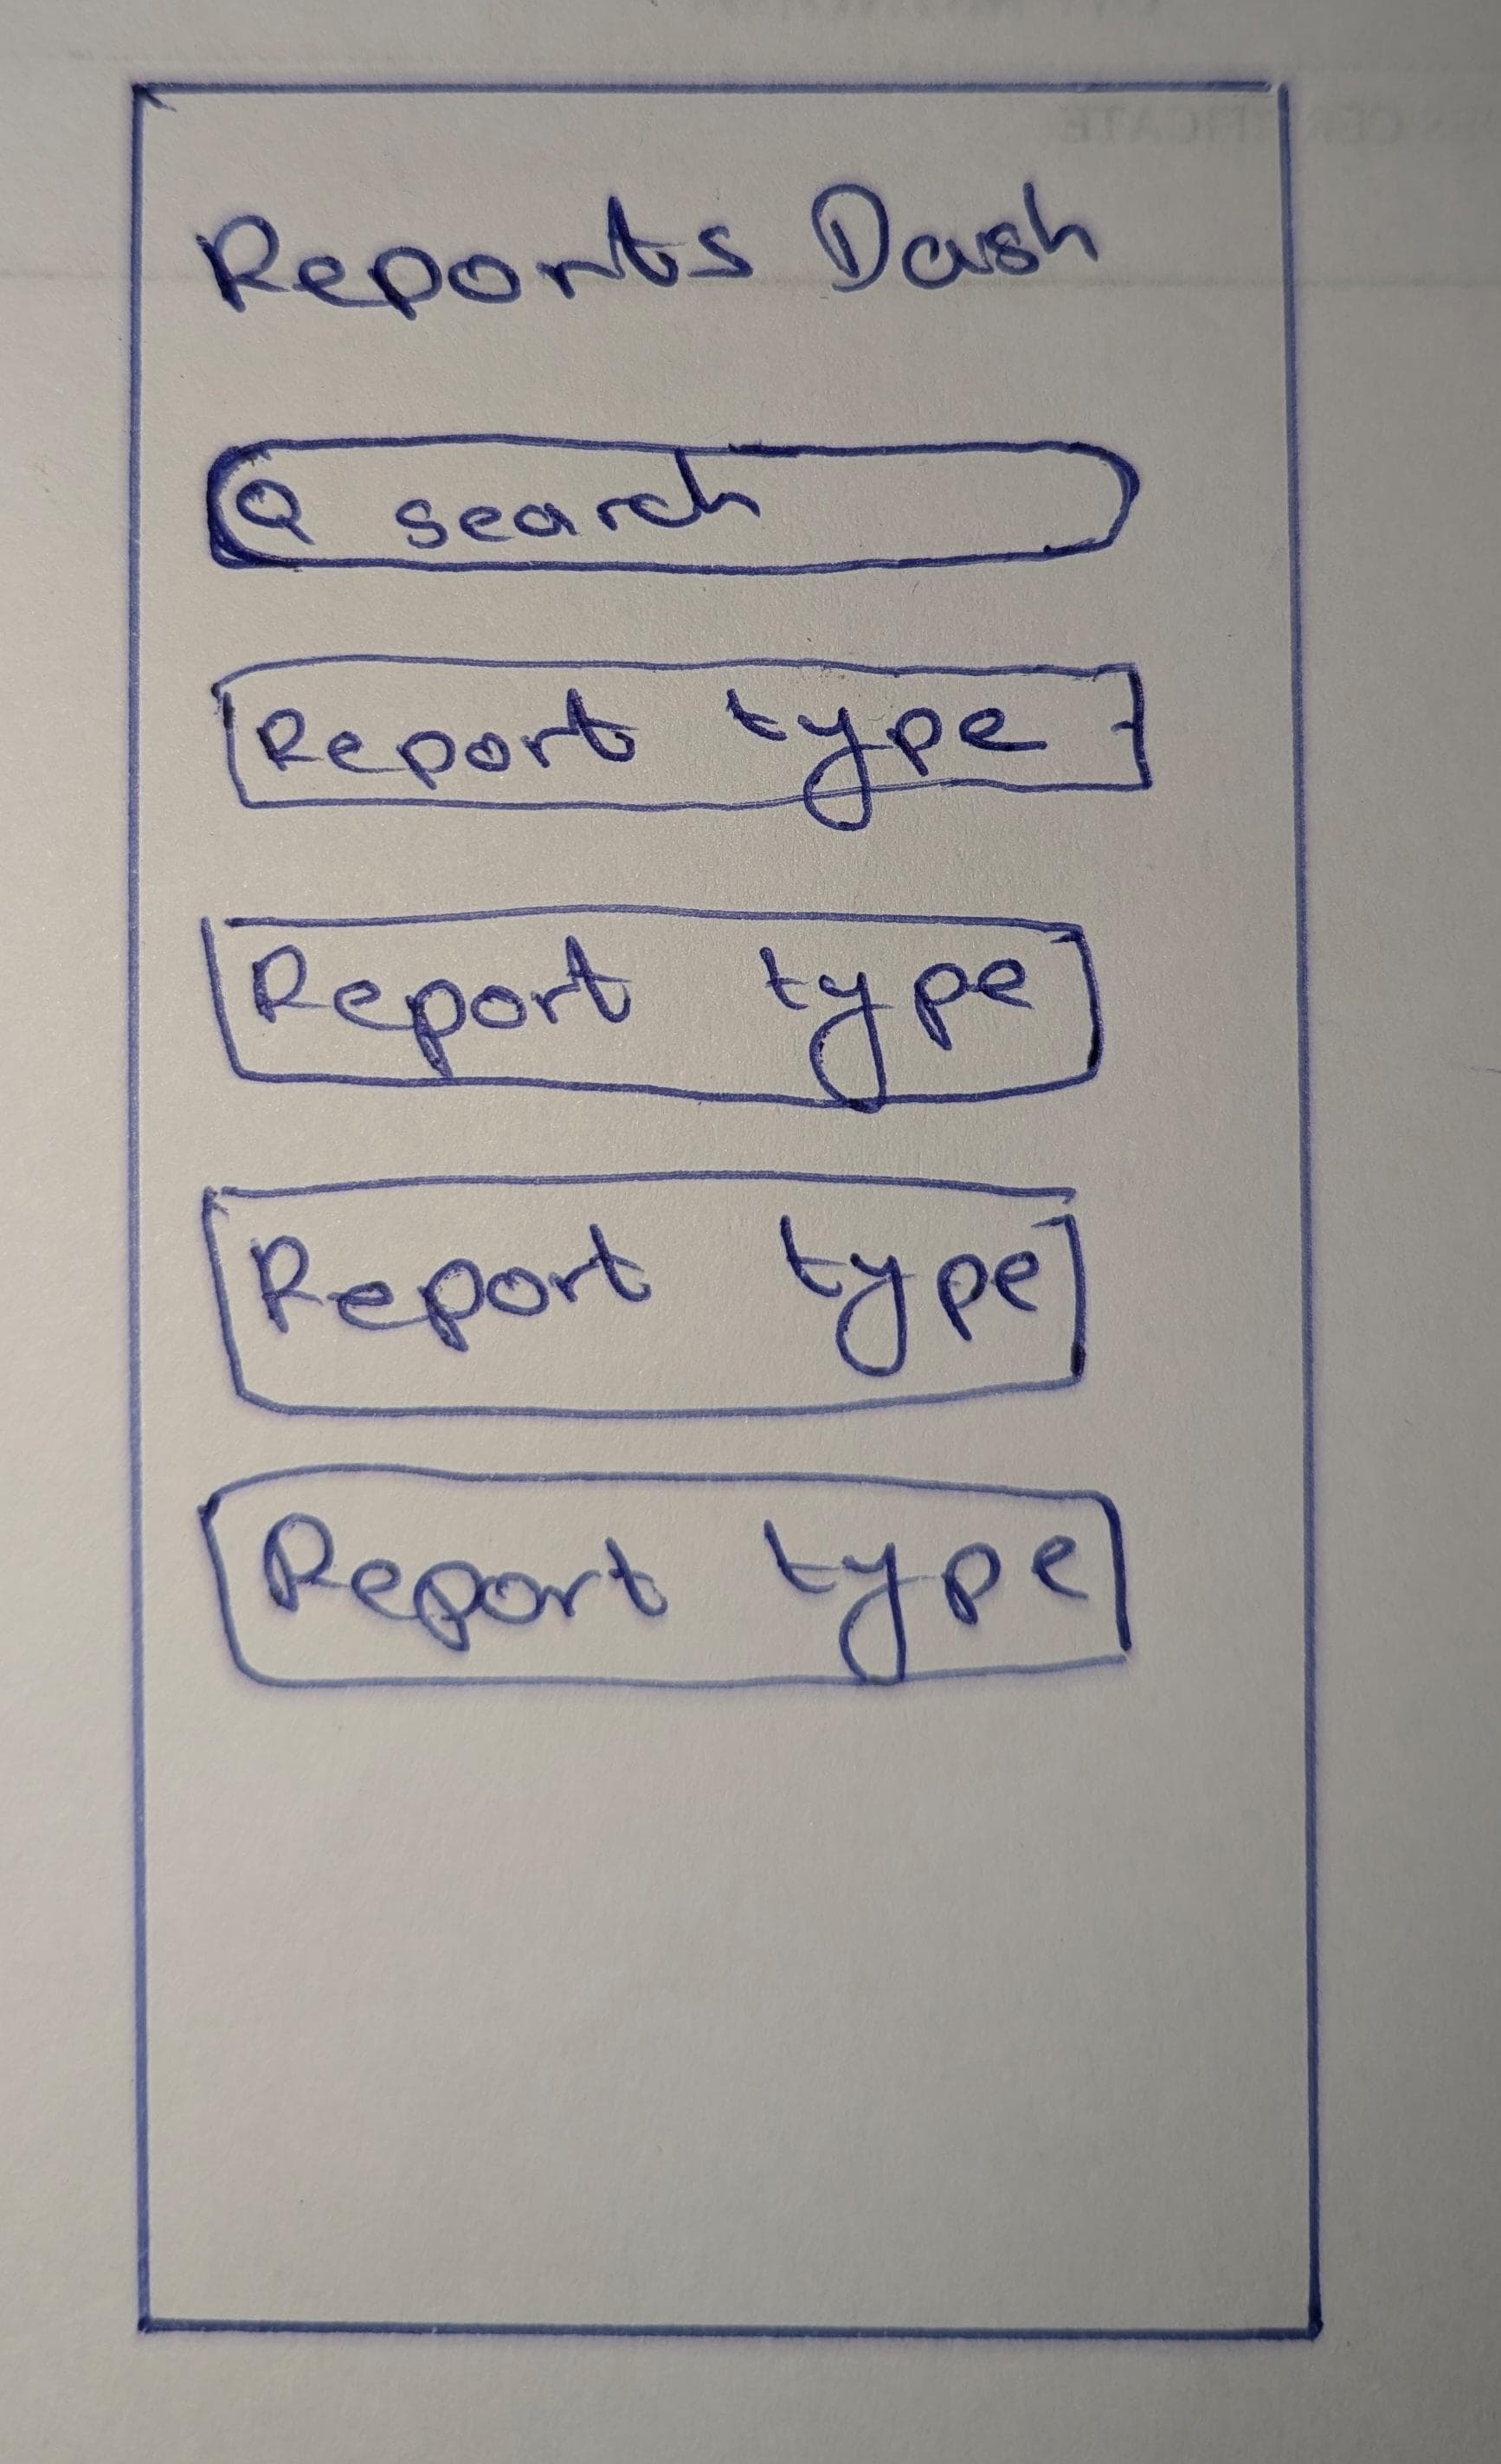 Reports Dash
search
Report type
Report type
Report type
Report type